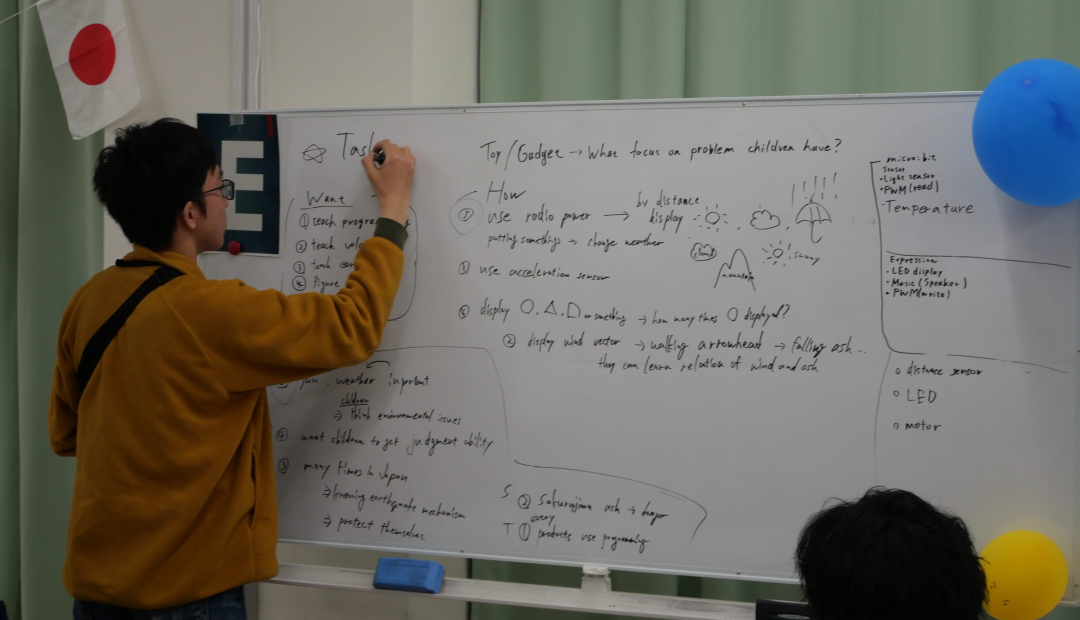 E
Task
Want
① teach
② teach
③
④ figure
Toy / Gadget → What focus on problem children have?
How
use radio power → by distance display
putting somethings → change weather
sunny
③ use acceleration sensor
display ○, △, D or something → how many times ○ displayed?
② display wind vector → walking arrowhead → falling ash...
they can learn relation of wind and ash
micro:bit
Sensor
・Light sensor
・PWM (read)
・Temperature
Expression
・LED display
・Music (Speaker)
・PWM (write)
○ distance sensor
○ LED
○ motor
weather inportant
children
⇒ think environmental issues
④ want children to get judgment ability
③ many times in Japan
⇒ learning earthquake mechanism
⇒ protect themselves.
S ② Sakurajima ash → danger
every
T ① products use programing